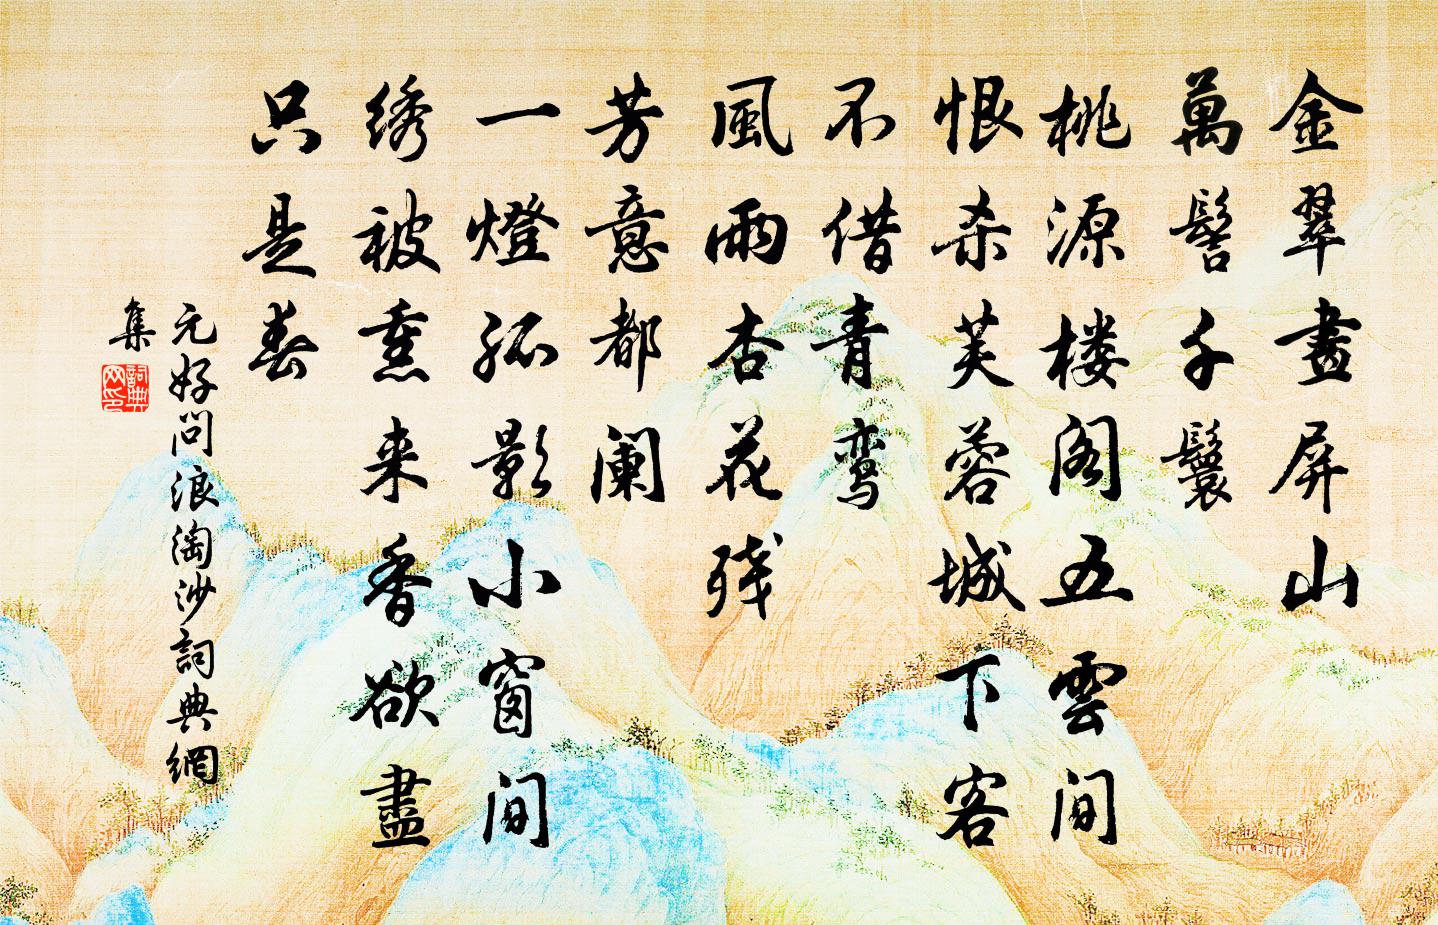 金翠畫屏山
萬髻千鬟
桃源楼阁五雲间
恨杀芙蓉城下客
不借青鸾
風雨杏花残
芳意都阑
一燈孤影小窗间
绣被熏来香欲盡
只是春
元好问浪淘沙詞典網
集
詞典网印